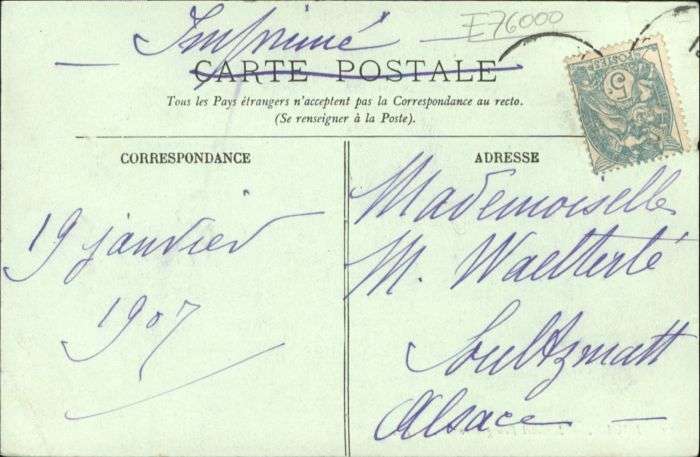 Imprimé
E76000
CARTE POSTALE
Tous les Pays étrangers n'acceptent pas la Correspondance au recto.
(Se renseigner à la Poste).
CORRESPONDANCE
19 janvier
1907
ADRESSE
Mademoiselle
M. Waetterlé
Soultzmatt
Alsace
5
POSTES